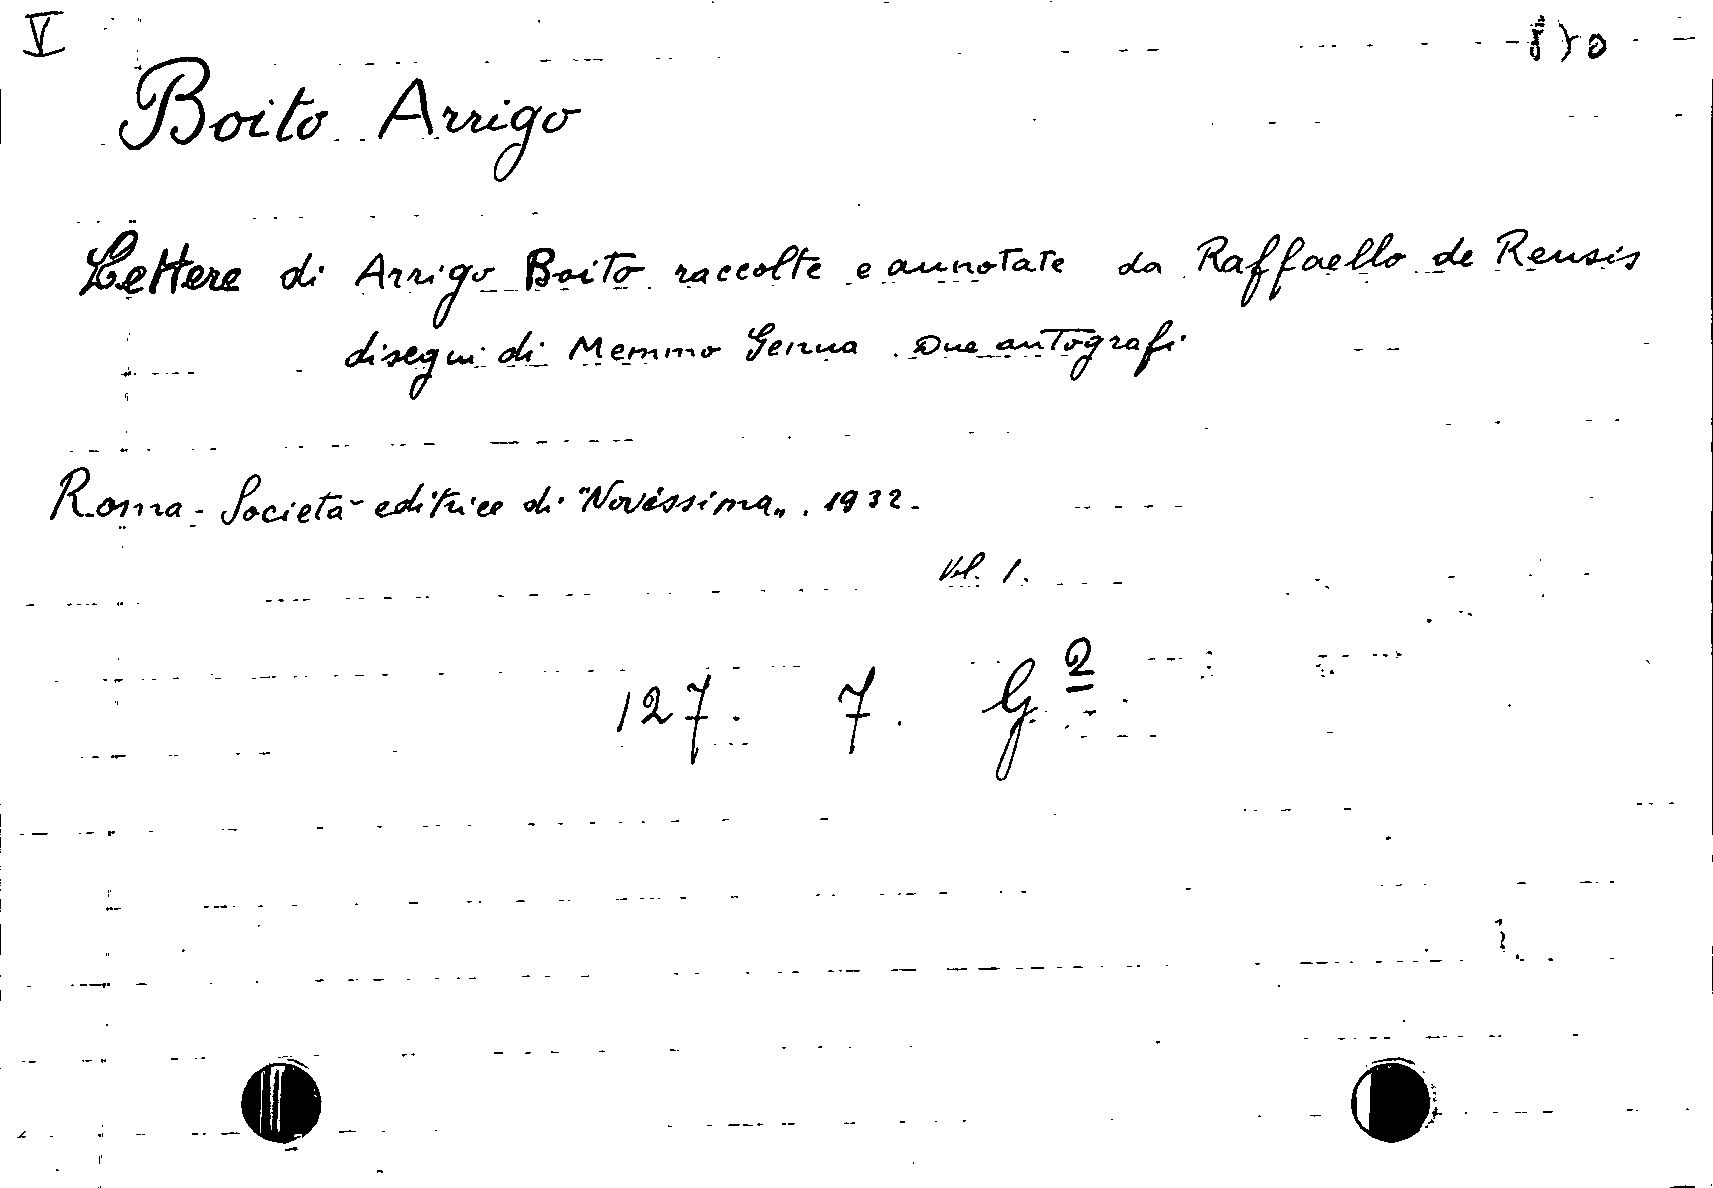 V
Boito Arrigo
Lettere di Arrigo Boito raccolte e annotate da Raffaello de Rensis
disegni di Memmo Genua. Due autografi
Roma - Società editrice di "Novissima". 1932.
Vol. 1.
127. 7. G.2